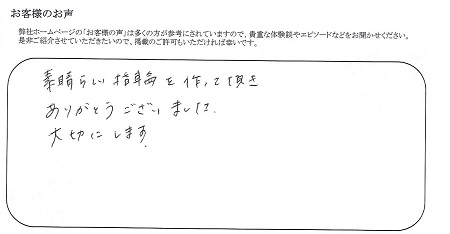 お客様のお声
弊社ホームページの「お客様の声」は多くの方が参考にされていますので、貴重な体験談やエピソードなどをお聞かせください。
是非ご紹介させていただきたいので、掲載のご許可もいただければ幸いです。
素晴らしい指輪を作って頂き
ありがとうございました。
大切にします。